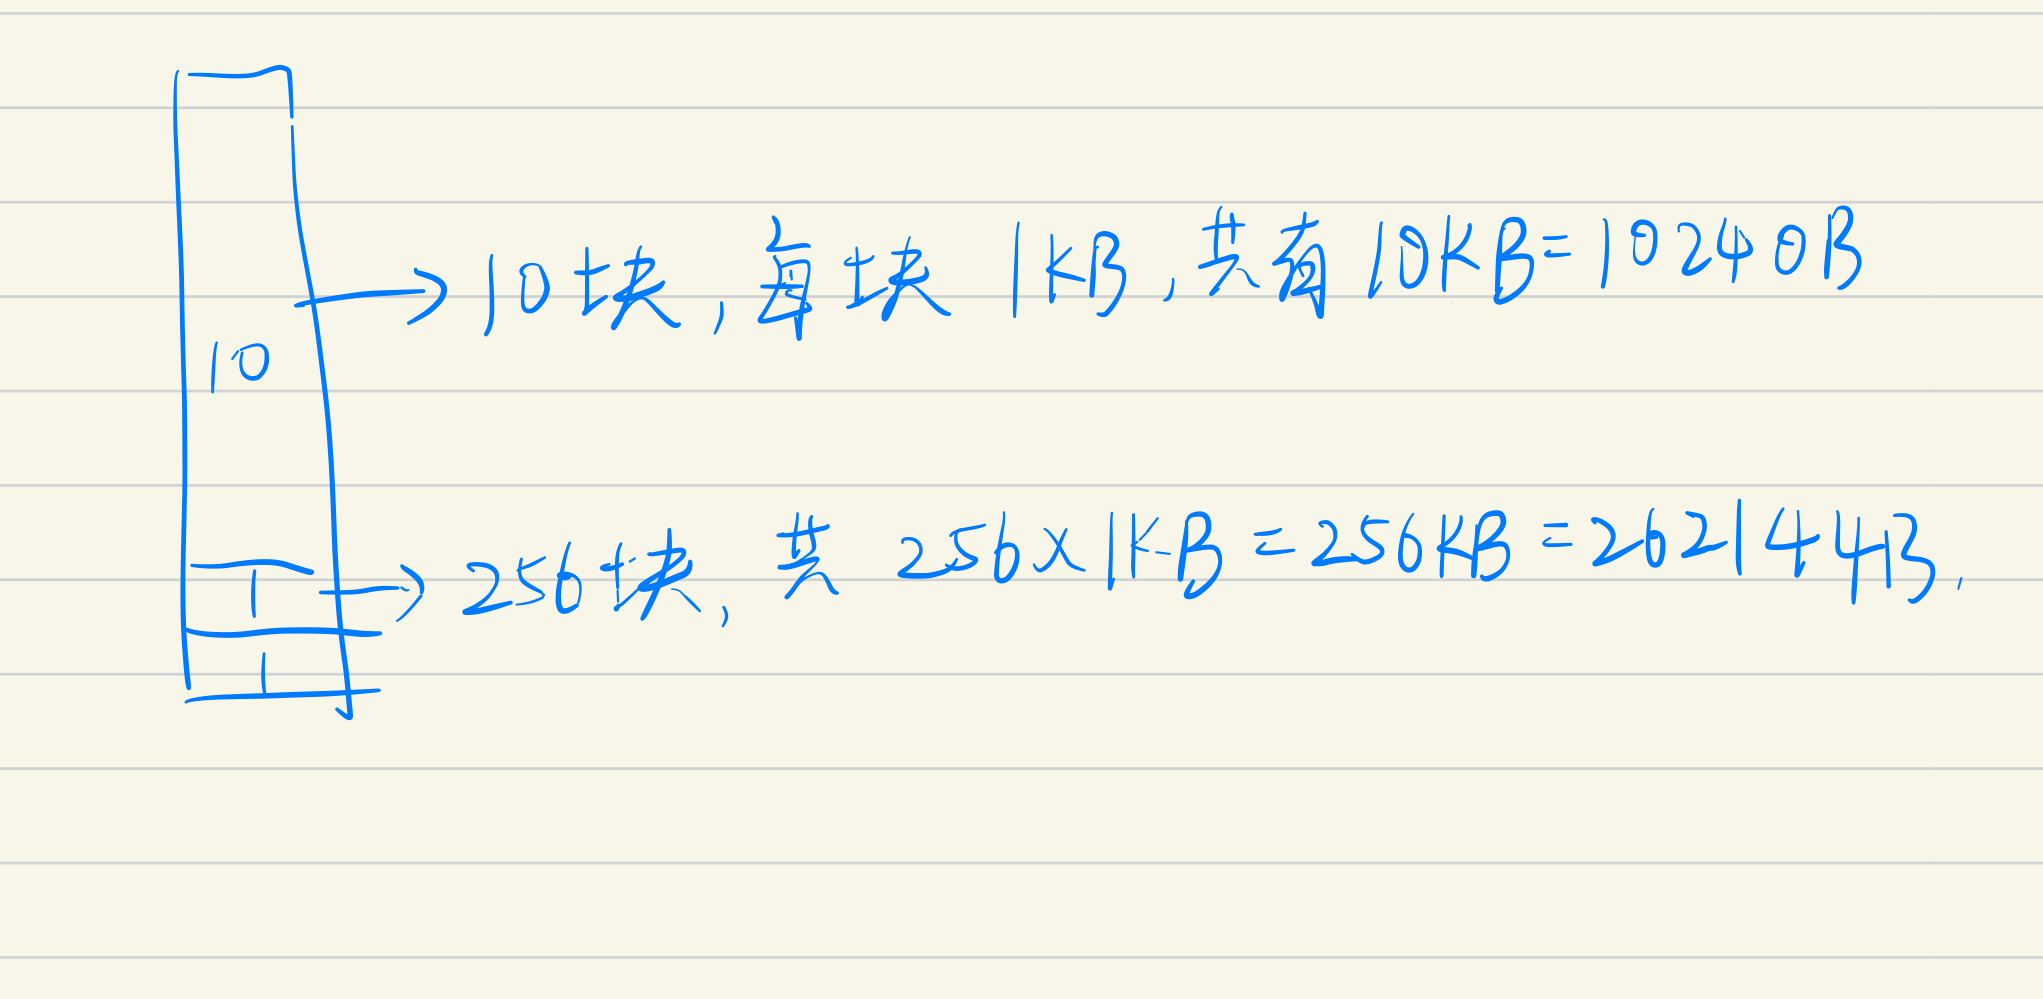 10块,每块 1KB,共有10KB=10240B
10
1
256块,共 256×1KB=256KB=262144B,
1